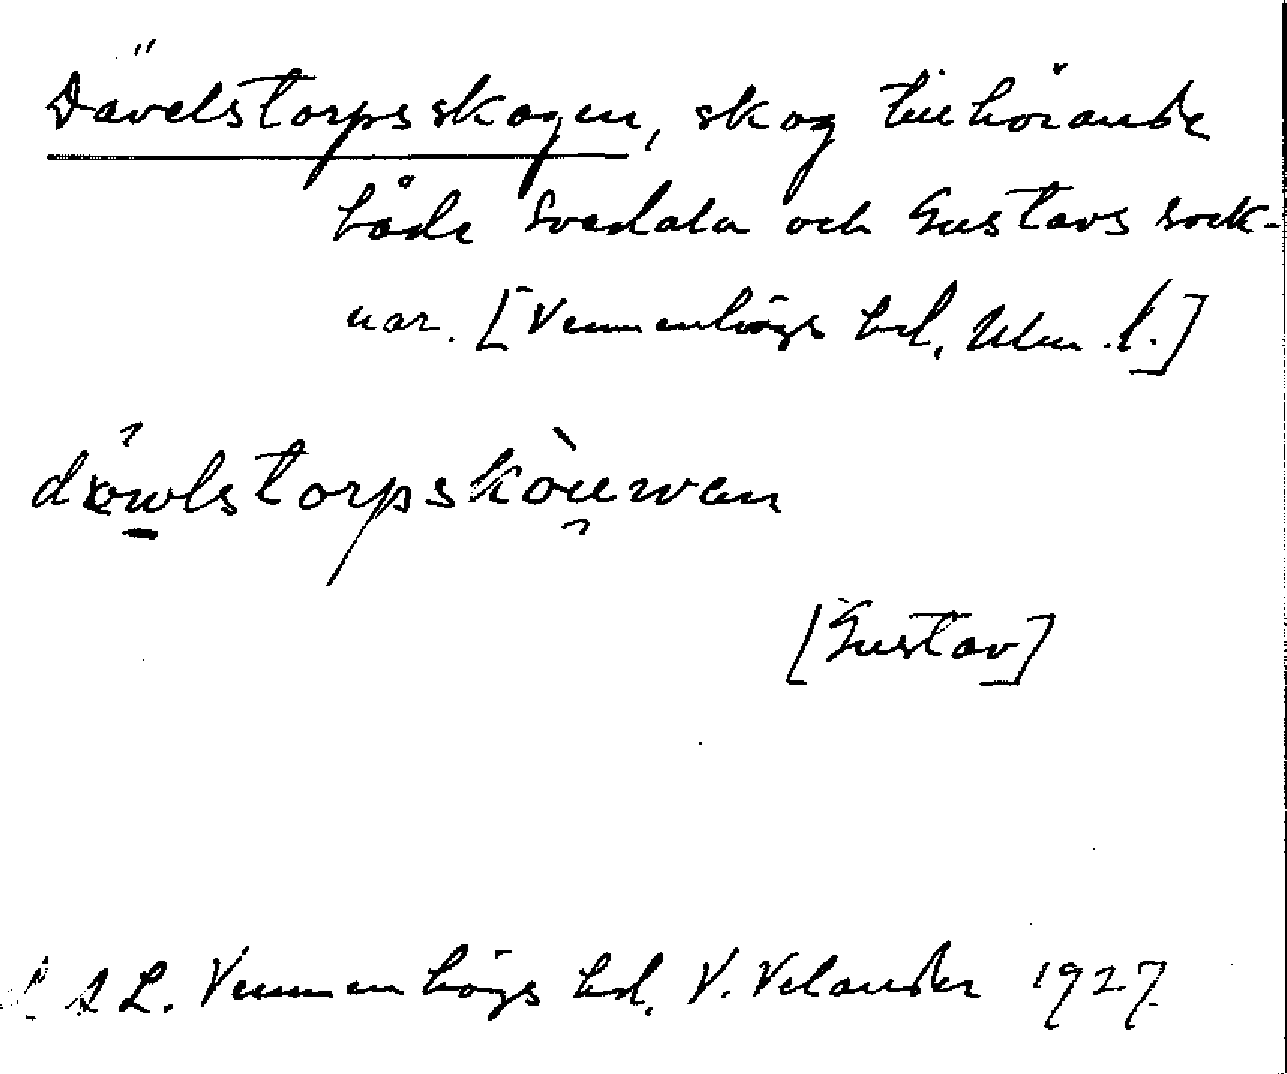 Dävelstorpsskogen, skog tillhörande
både Svedala och Gustavs sock-
nar. [Vemmenhögs hd, Mlm. l.]
torpskòuwan
[Gustav]
A L. Vemmenhögs hd. V. Velander 1927